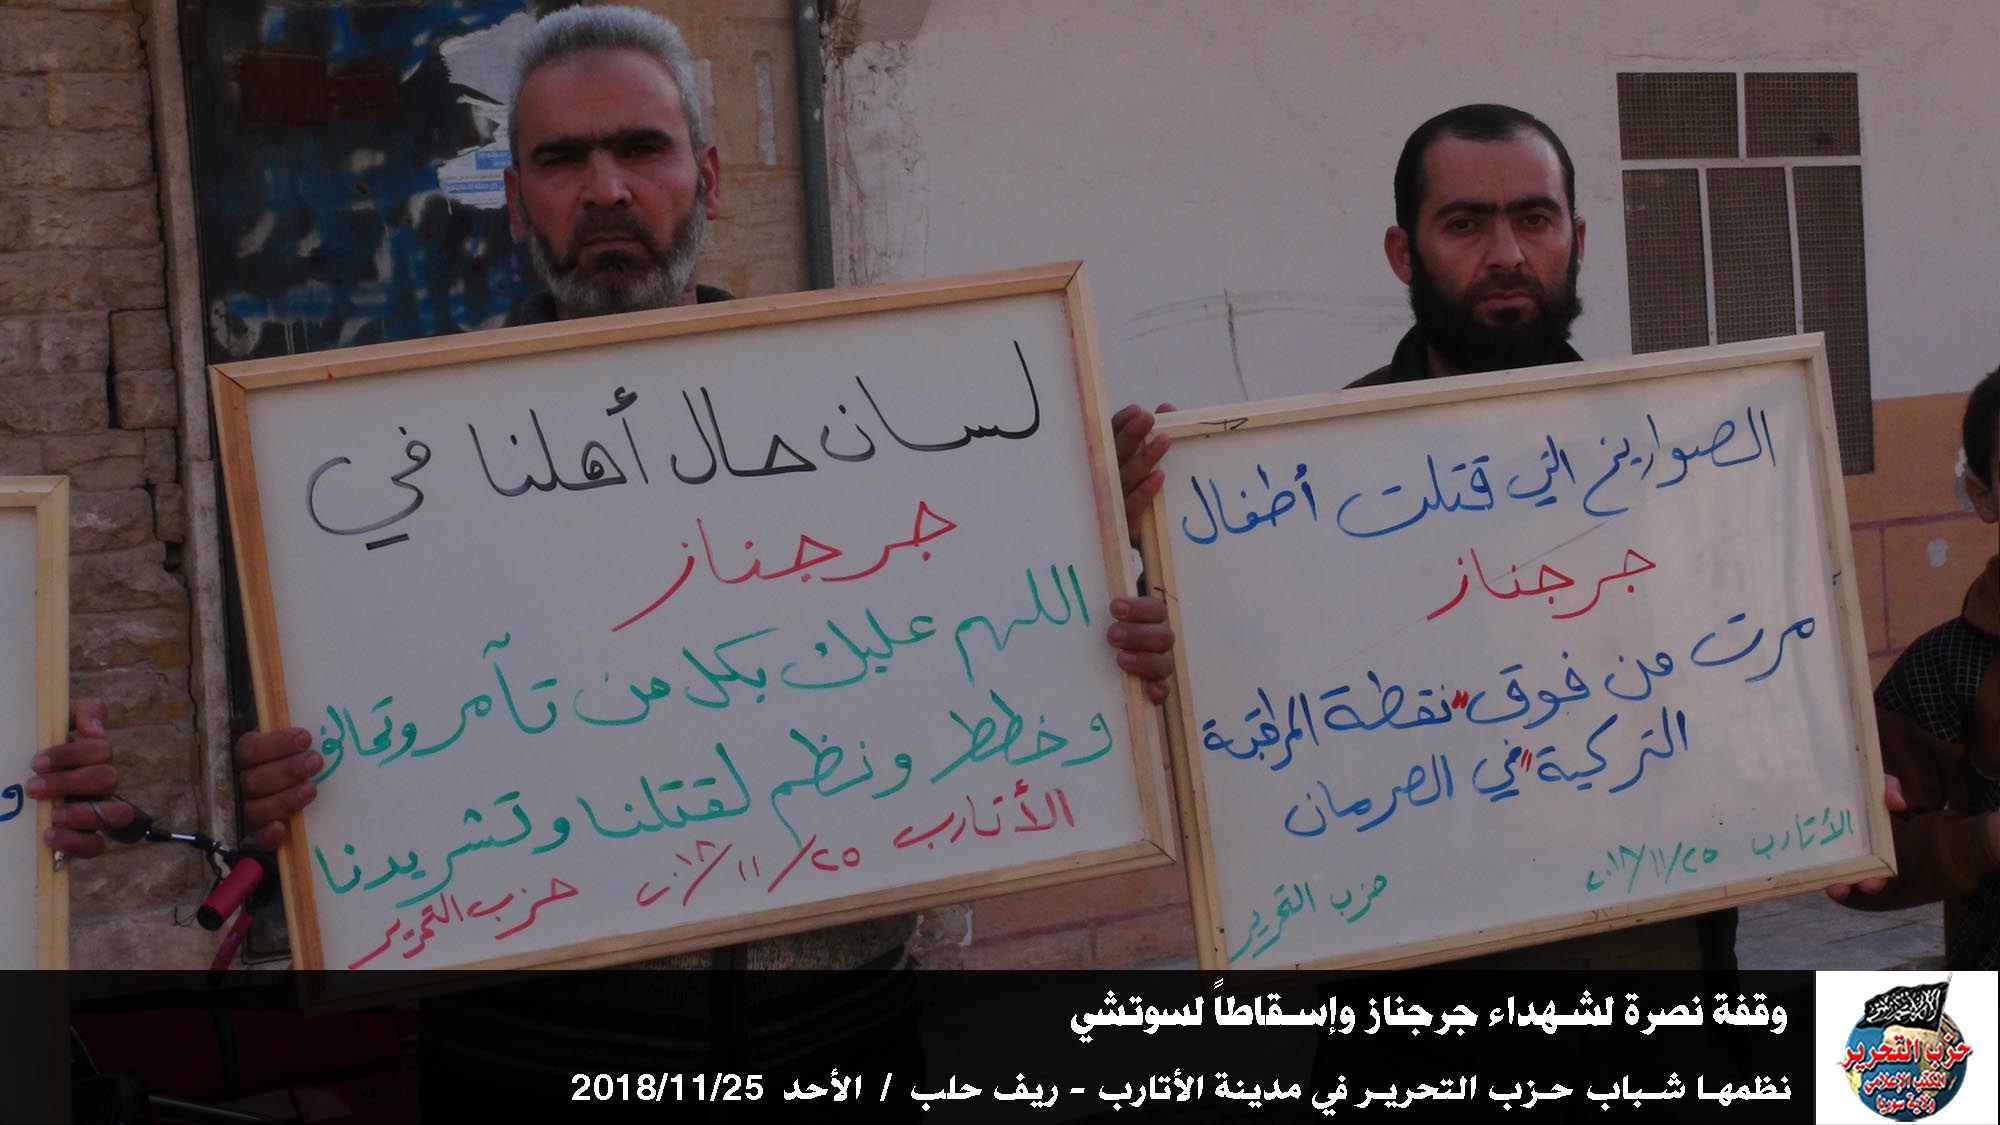 لسان حال أهلنا في
جرجناز
اللهم عليك بكل من تآمر وتخاذل
وخطط ونظم لقتلنا وتشريدنا
الأتارب ٢٥/١١/٢٠١٨ حزب التحرير
الصواريخ التي قتلت أطفال
جرجناز
مرت من فوق "نقطة المراقبة
التركية" في الصرمان
الأتارب ٢٥/١١/٢٠١٨
حزب التحرير
و
وقفة نصرة لشهداء جرجناز وإسقاطاً لسوتشي
نظمها شباب حزب التحرير في مدينة الأتارب - ريف حلب / الأحد 2018/11/25
حزب التحرير
المكتب الإعلامي
ولاية سوريا